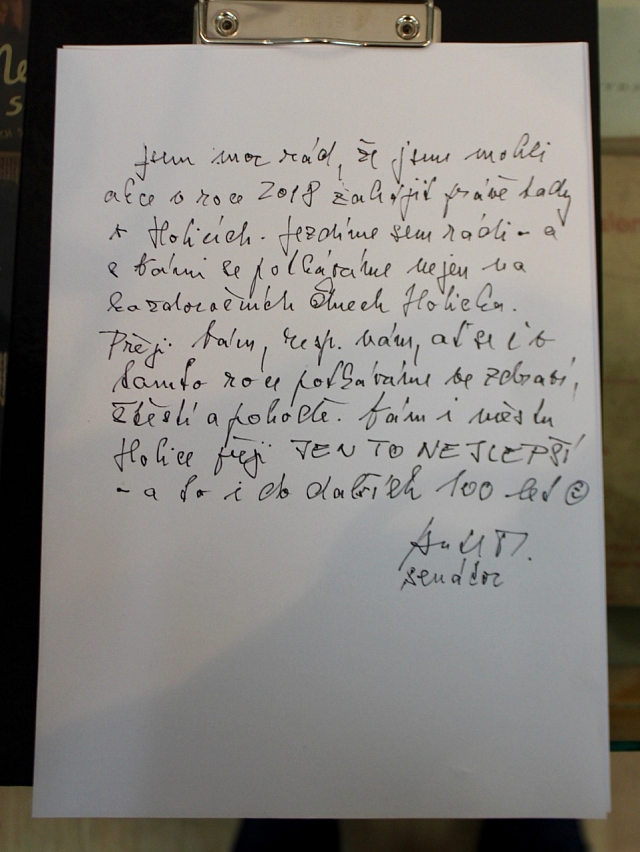 Jsem moc rád, že jsme mohli
akce v roce 2018 zahájit právě tady
v Holicích. Jezdíme sem rádi - a
s Vámi se potkáváme nejen na
každoročních Dnech Holicka.
Přeji Vám, resp. nám, ať se i v
tomto roce potkáváme ve zdraví,
štěstí a pohodě. Vám i městu
Holice přeji JEN TO NEJLEPŠÍ
- a to i do dalších 100 let ☺
senátor